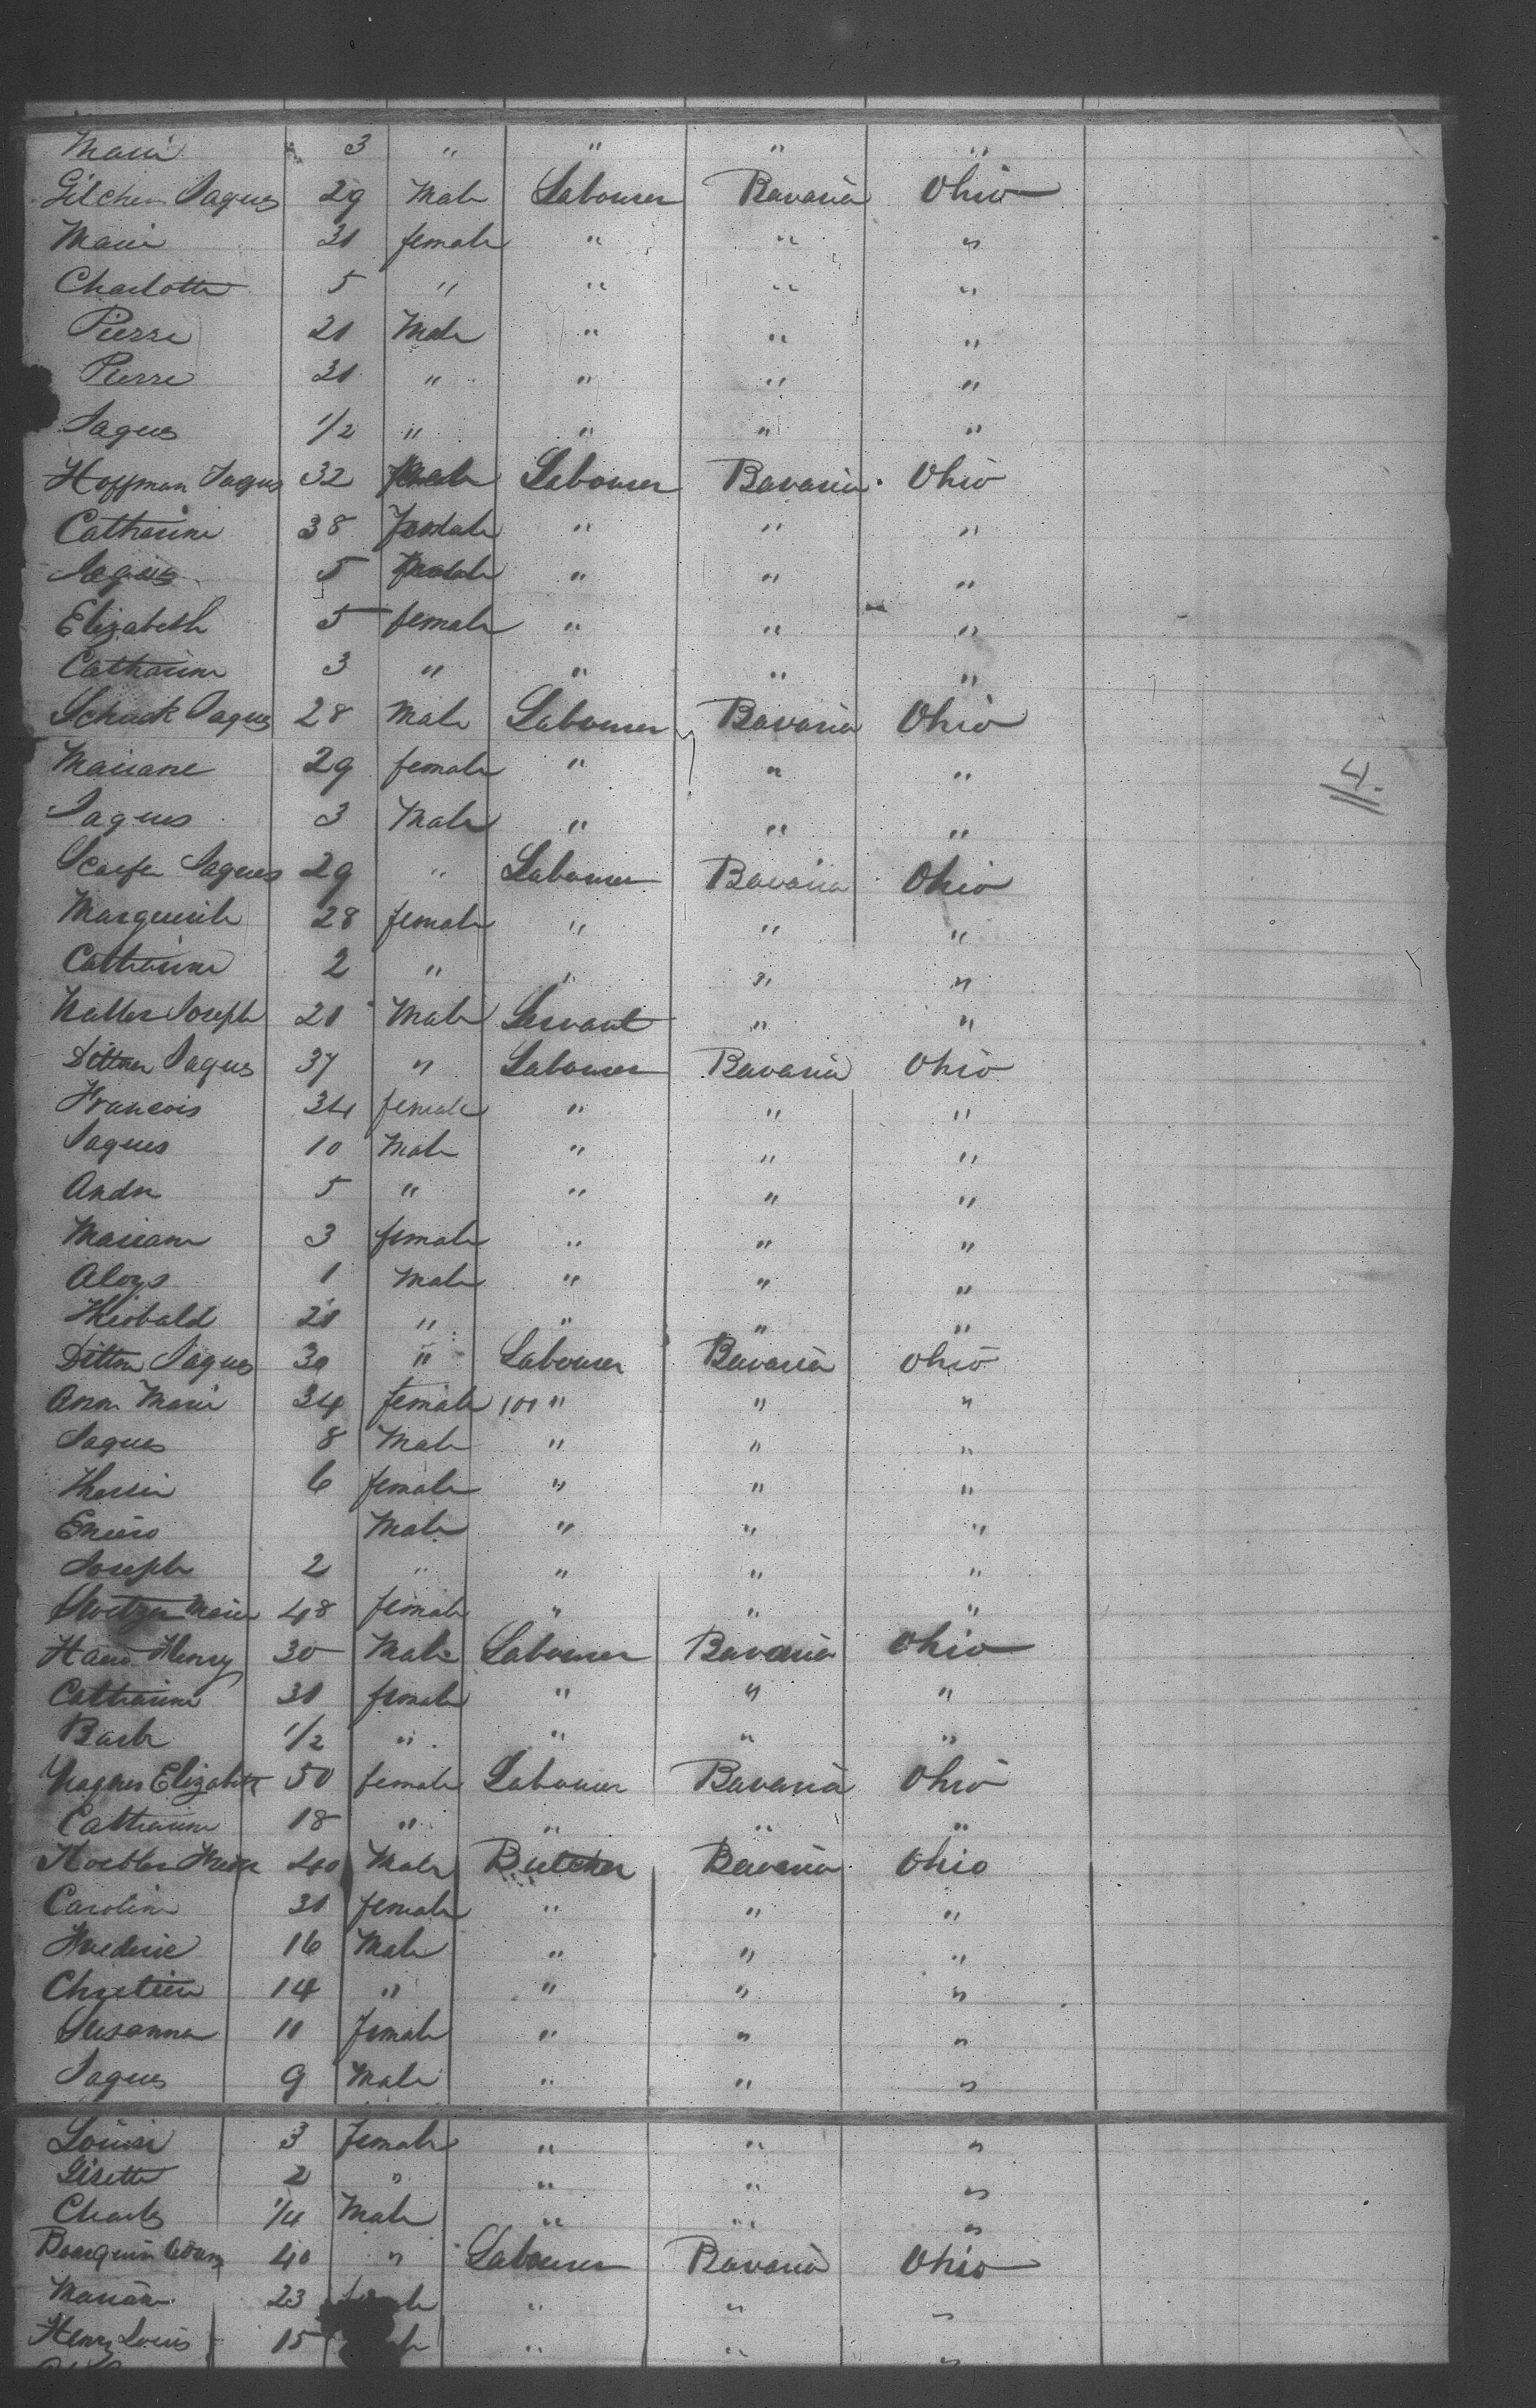 Marie 3 " " " "
Gilcher Jaques 29 Male Labourer Bavaria Ohio
Marie 31 female " " "
Charlotte 5 " " " "
Pierre 21 Male " " "
Pierre 31 " " " "
Jaques 1/2 " " " "
Hoffman Jaques 32 Male Labourer Bavaria Ohio
Catharine 38 female " " "
Jaques 5 " " "
Elizabeth 5 female " " "
Catharine 3 " " " "
Schuck Jaques 28 Male Labourer Bavaria Ohio
Mariane 29 female " " "
Jaques 3 Male " " "
Scaefer Jaques 29 " Labourer Bavaria Ohio
Marguerite 28 female " " "
Catharine 2 " " " "
Joseph 21 Male Servant " "
Dittmer Jaques 37 " Labourer Bavaria Ohio
Francois 34 female " " "
Jaques 10 Male " " "
Andre 5 " " " "
Mariane 3 female " " "
Aloys 1 Male " " "
Theobald 21 " " " "
Jaques 30 " Labourer Bavaria Ohio
Ann Marie 34 female 100 " " "
Jaques 8 Male " " "
6 female " " "
Male " " "
Joseph 2 " " " "
Marie 48 female " " "
Henry 30 Male Labourer Bavaria Ohio
Catharine 31 female " " "
Barb 1/2 " " " "
Wagner Elizabeth 50 female Labourer Bavaria Ohio
Catharine 18 " " " "
40 Male Butcher Bavaria Ohio
Caroline 31 female " " "
Frederic 16 Male " " "
Chretien 14 " " " "
Susanna 11 female " " "
Jaques 9 Male " " "
Louise 3 female " " "
Lisette 2 " " " "
Charles 1/4 Male " " "
Bourquin Adam 40 " Labourer Bavaria Ohio
Mariane 23 " " "
Henry Louis 15 " " "
4.